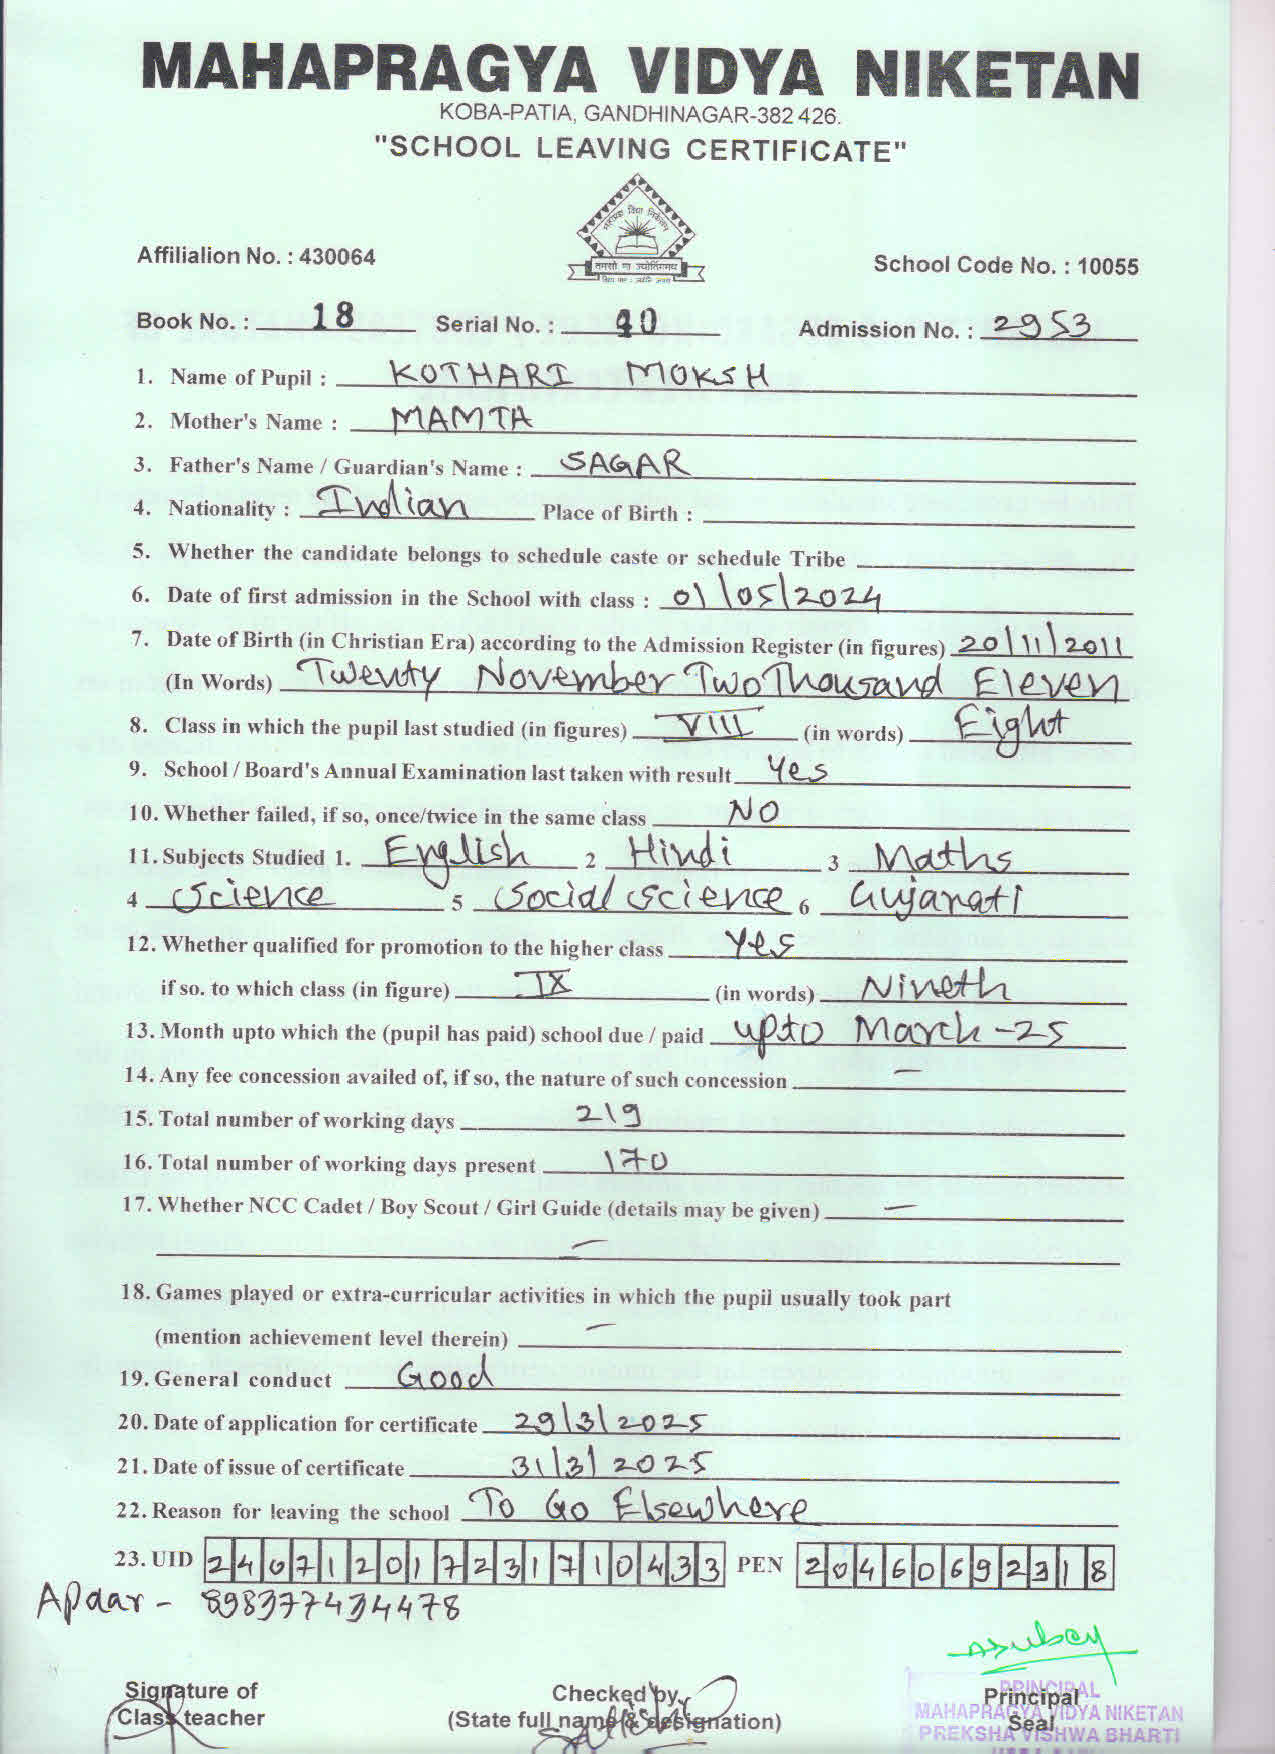 MAHAPRAGYA VIDYA NIKETAN
KOBA-PATIA, GANDHINAGAR-382 426.
"SCHOOL LEAVING CERTIFICATE"
तमसो मा ज्योतिर्गमय
Affilialion No. : 430064
School Code No. : 10055
Book No. : 18 Serial No. : 40 Admission No. : 2953
1. Name of Pupil : KOTHARI MOKSH
2. Mother's Name : MAMTA
3. Father's Name / Guardian's Name : SAGAR
4. Nationality : Indian Place of Birth :
5. Whether the candidate belongs to schedule caste or schedule Tribe
6. Date of first admission in the School with class : 01/05/2024
7. Date of Birth (in Christian Era) according to the Admission Register (in figures) 20/11/2011
(In Words) Twenty November Two Thousand Eleven
8. Class in which the pupil last studied (in figures) VIII (in words) Eight
9. School / Board's Annual Examination last taken with result Yes
10. Whether failed, if so, once/twice in the same class NO
11. Subjects Studied 1. English 2 Hindi 3 Maths
4 Science 5 Social Science 6 Gujarati
12. Whether qualified for promotion to the higher class Yes
if so. to which class (in figure) IX (in words) Nineth
13. Month upto which the (pupil has paid) school due / paid upto March-25
14. Any fee concession availed of, if so, the nature of such concession —
15. Total number of working days 219
16. Total number of working days present 170
17. Whether NCC Cadet / Boy Scout / Girl Guide (details may be given) —
—
18. Games played or extra-curricular activities in which the pupil usually took part
(mention achievement level therein) —
19. General conduct Good
20. Date of application for certificate 29/3/2025
21. Date of issue of certificate 31/3/2025
22. Reason for leaving the school To Go Elsewhere
23. UID 240712017231710433 PEN 20460692318
Apaar - 898377434478
Signature of
Class teacher
Checked by
(State full name & designation)
Principal
Seal
PRINCIPAL
MAHAPRAGYA VIDYA NIKETAN
PREKSHA VISHWA BHARTI